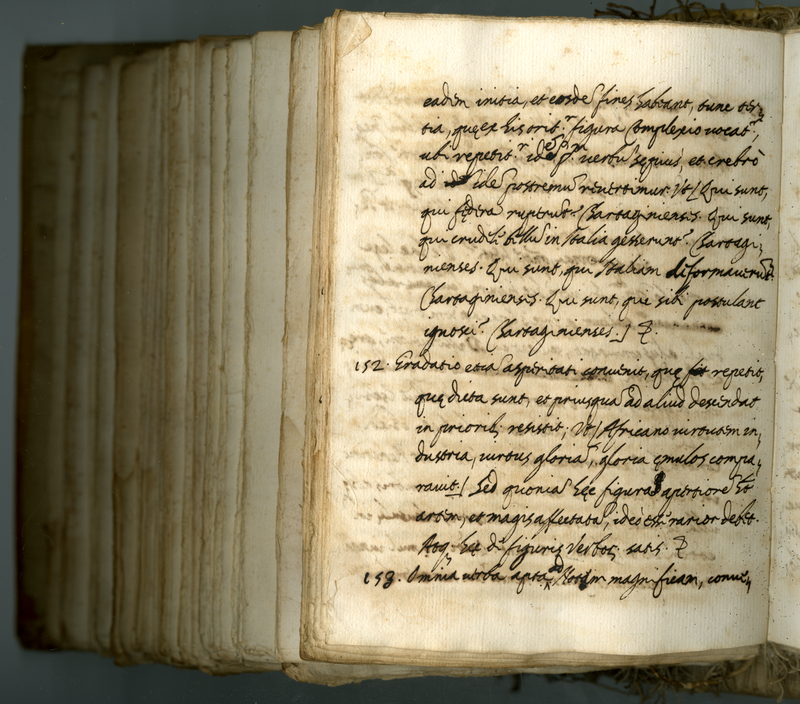 eadem initia, et eosdē fines habeant, tunc ter-
tia, quę ex his orit.r figura Complexio vocat.r,
ubi repetit.r idē verbū sępius, et crebrò
ad idē postremū revertimur. Vt/ Qui sunt,
qui fędera ruperūt? Chartaginienses. Qui sunt,
qui crudel. bellū in Italia gesserunt? Chartagi-
nienses. Qui sunt, qui Italiam deformaverūt?
Chartaginienses. Qui sunt, qui sibi postulant
ignosci? Chartaginienses./
152. Gradatio etiā asperitati convenit, quę repetit,
quę dicta sunt, et priusquā ad aliud descendat
in priorib; resistit; Vt/ Africano virtutem in-
dustria, virtus gloriā, gloria ęmulos compa-
ravit./ Sed quoniā hęc figura apertiorē h̄t
artem, et magis affectatā, ideò rarior debet.
Atq; hęc de figuris Verbor. satis.
153. Omnia verba apta magnificam, conve-